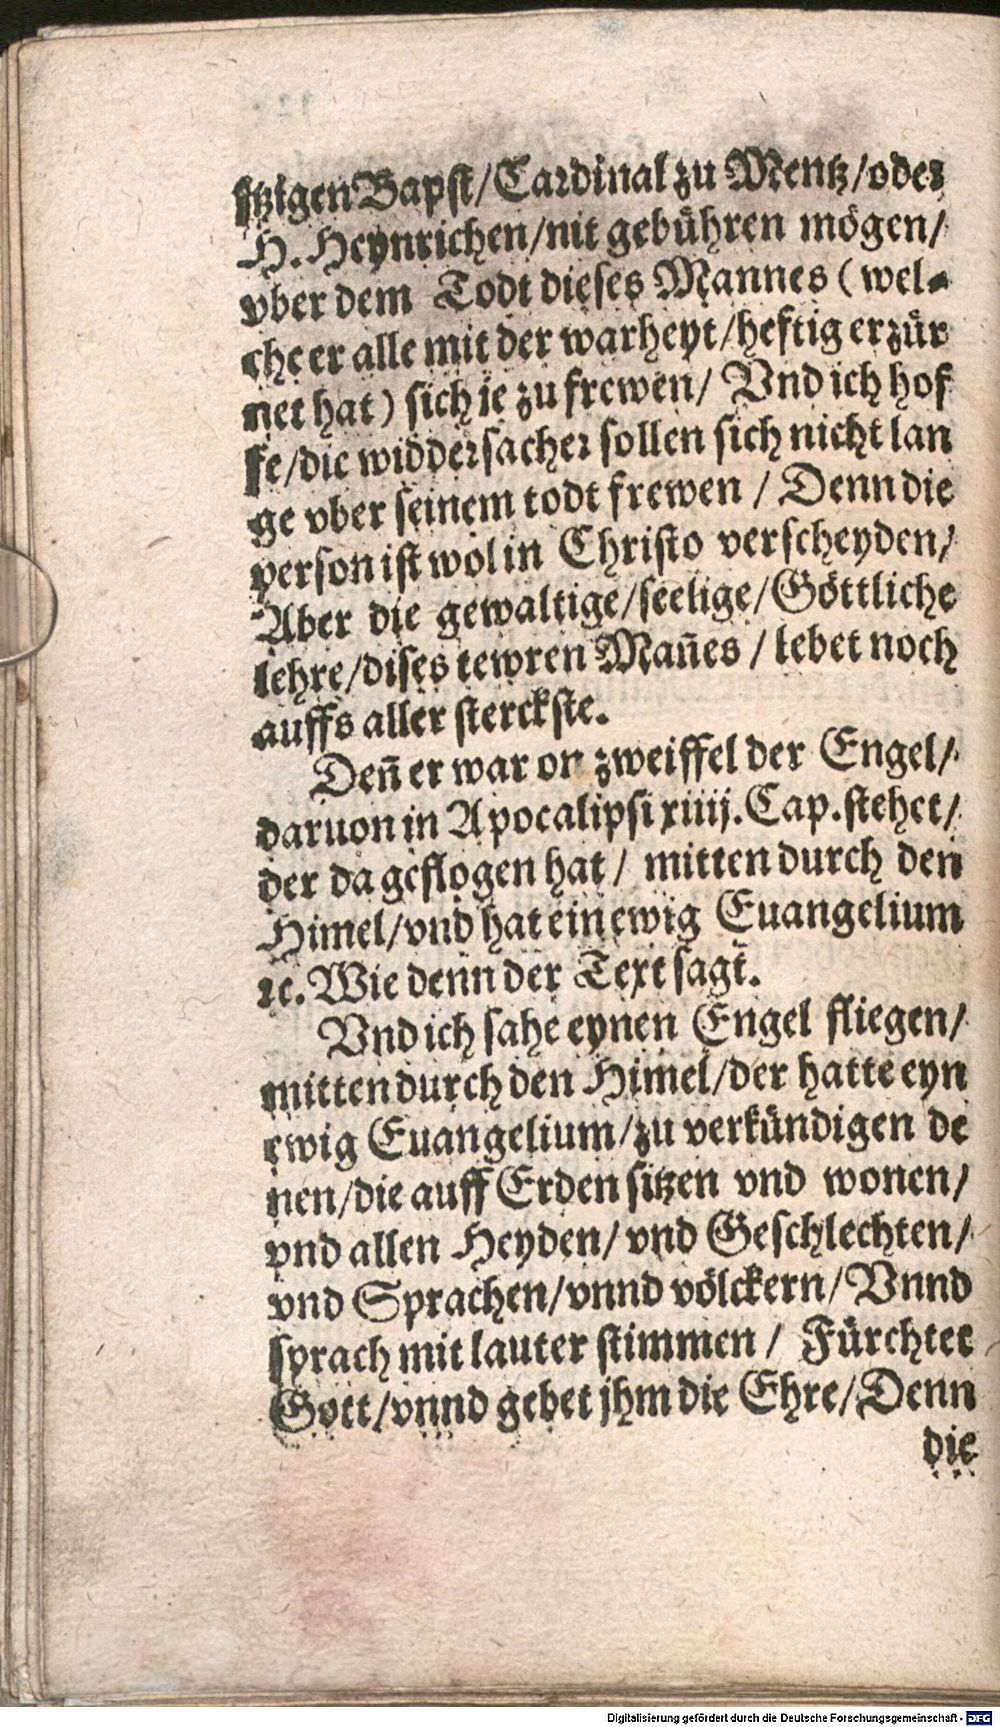 ſtzigen Bapſt/Cardinal zu Mentz/oder
H. Heynrichen/nit gebühren mögen/
vber dem Todt dieſes Mannes (wel⸗
che er alle mit der warheyt/heftig erzür
net hat) ſich je zu frewen/ Vnd ich hof
fe/die widderſacher ſollen ſich nicht lan
ge vber ſeinem todt frewen / Denn die
perſon iſt wol in Chriſto verſcheyden/
Aber die gewaltige/ſeelige/Göttliche
lehre/diſes tewren Mañes / lebet noch
auffs aller ſterckſte.
Deñ er war on zweiffel der Engel/
daruon in Apocalipſi xiiij. Cap. ſtehet/
der da geflogen hat / mitten durch den
Himel/vnd hat ein ewig Euangelium
ꝛc. Wie denn der Text ſagt.
Vnd ich ſahe eynen Engel fliegen/
mitten durch den Himel/der hatte eyn
ewig Euangelium/zu verkündigen de
nen/die auff Erden ſitzen vnd wonen/
vnd allen Heyden/ vnd Geſchlechten/
vnd Sprachen/vnnd völckern/ Vnnd
ſprach mit lauter ſtimmen / Fürchtet
Gott/vnnd gebet jhm die Ehre/Denn
die
Digitalisierung gefördert durch die Deutsche Forschungsgemeinschaft - DFG